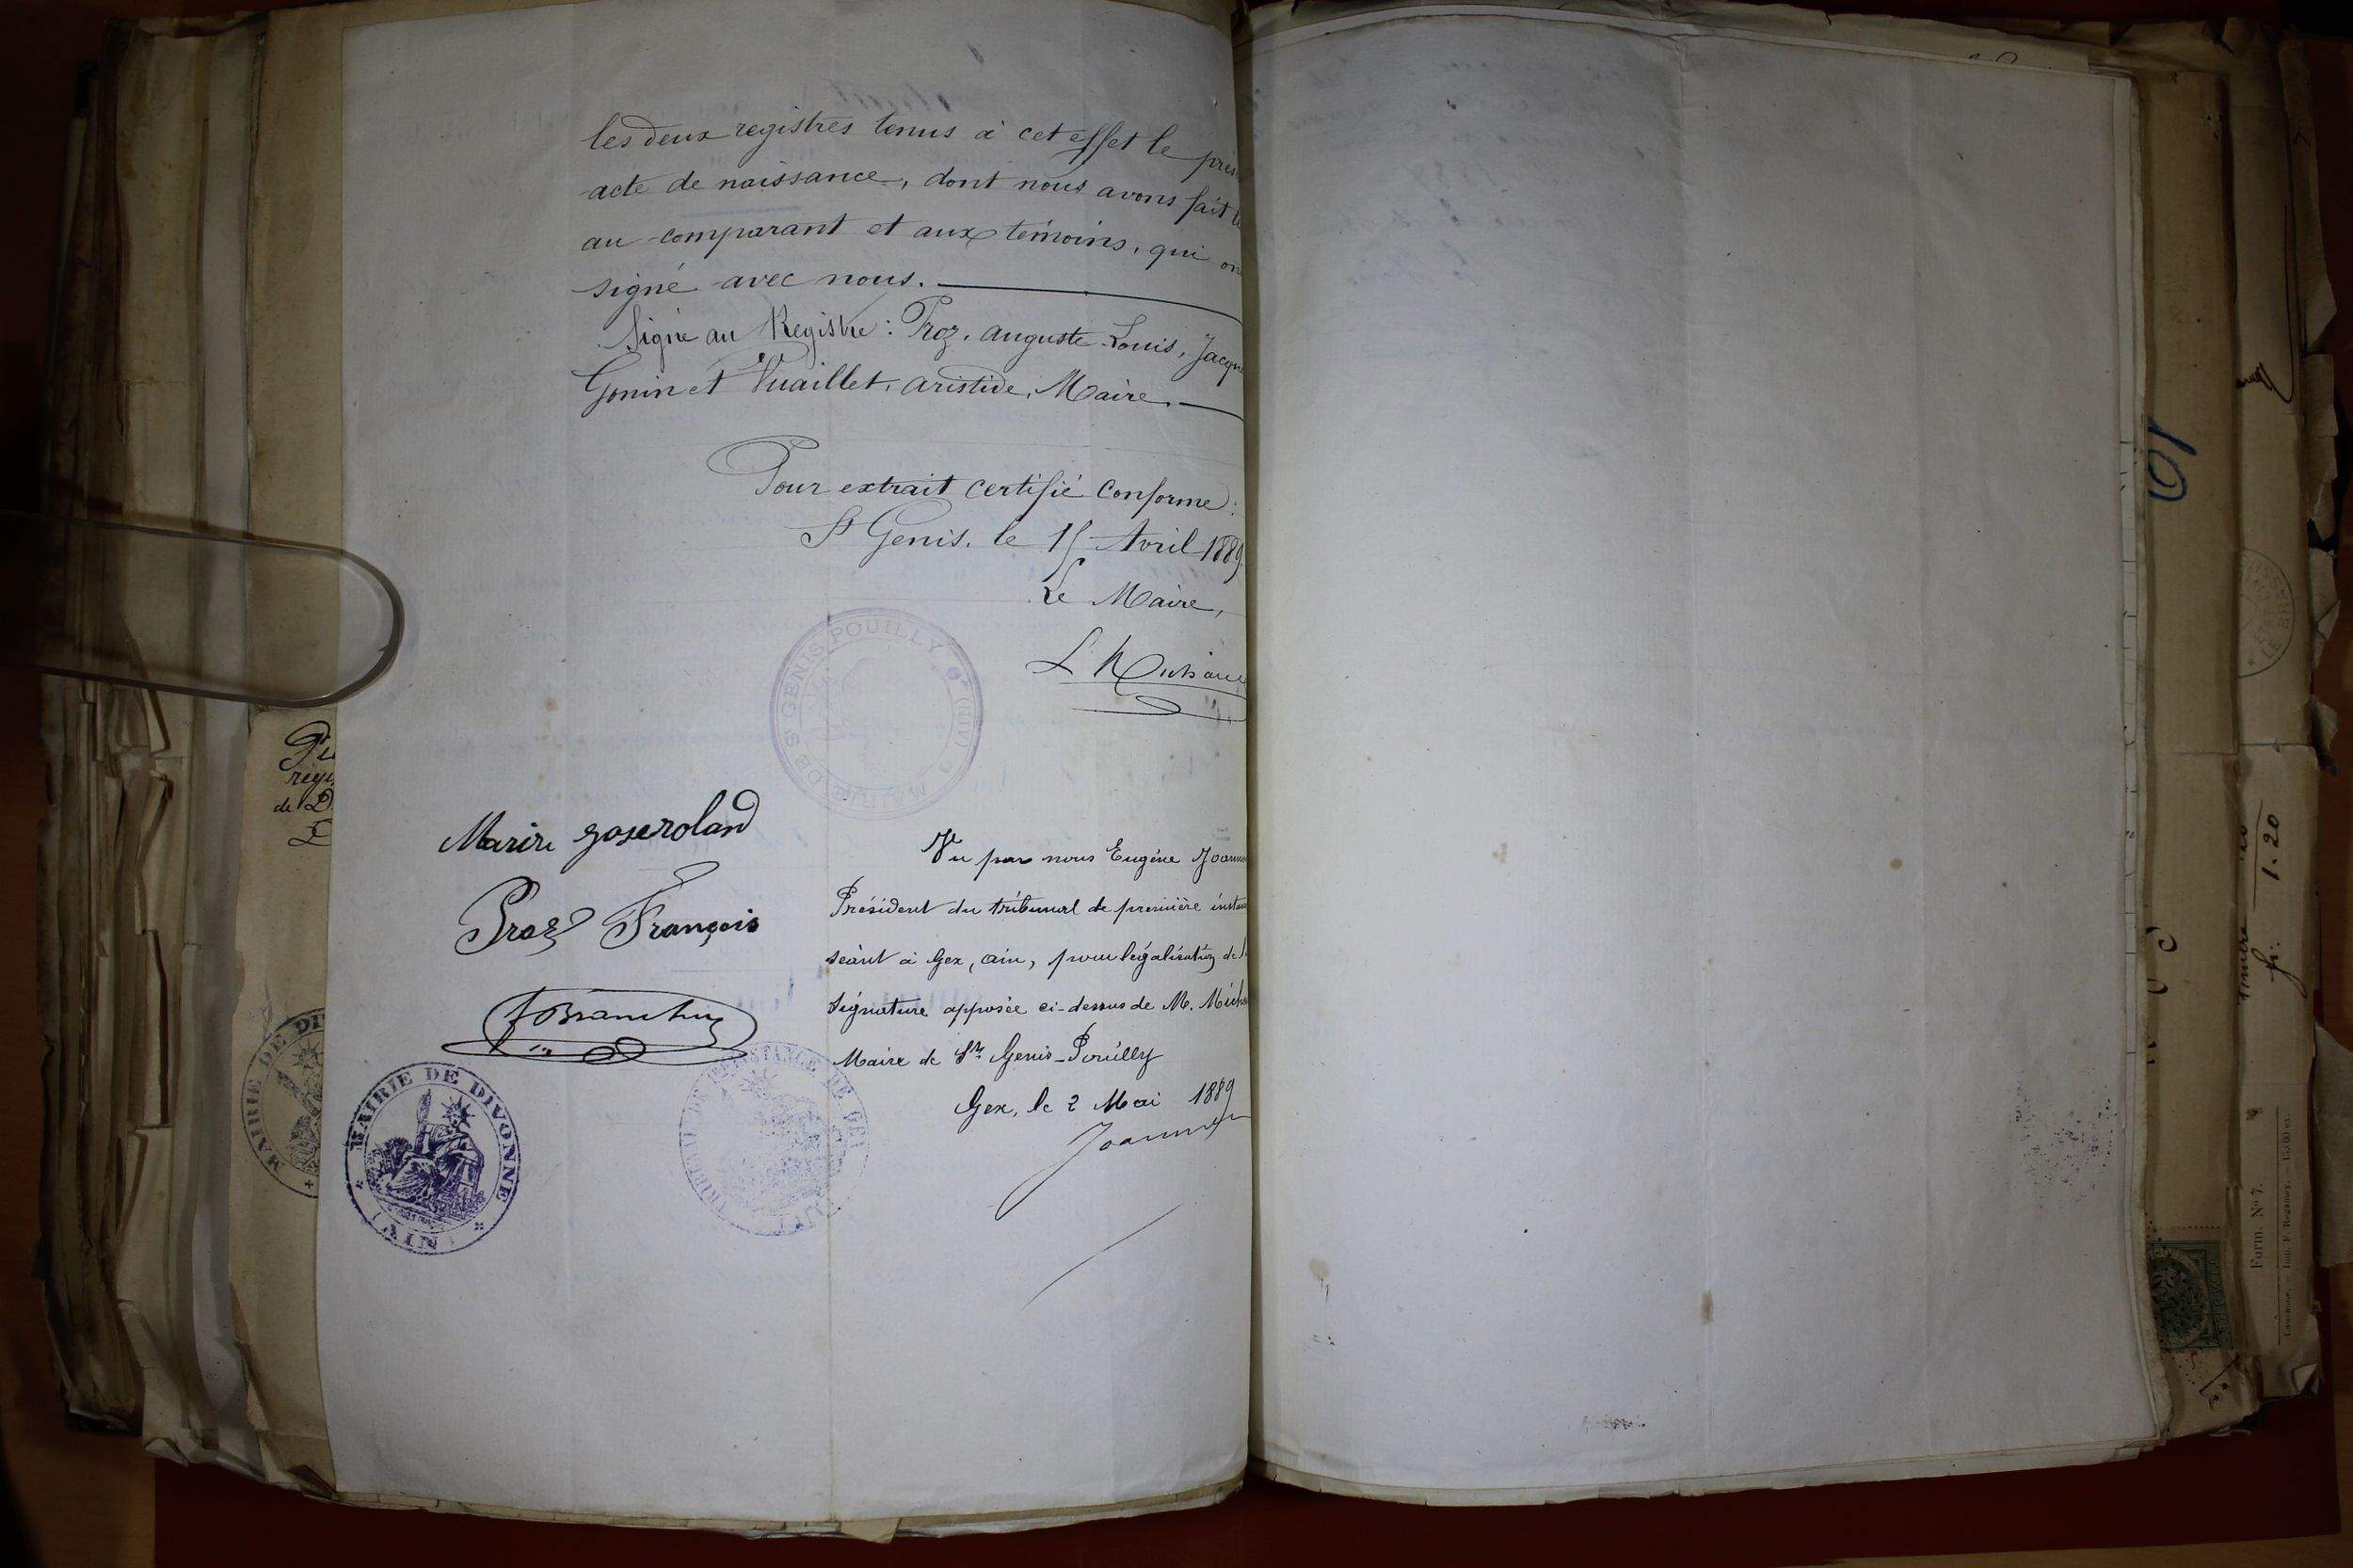 les deux registres tenus à cet effet le prés
acte de naissance, dont nous avons fait
au comparant et aux témoins, qui on
signé avec nous.
Signé au Registre: Proz, auguste Louis, Jacque
Gonin et Vuaillet, aristide, Maire.
Pour extrait certifié conforme:
St Genis, le 15 Avril 1889
Le Maire,
MAIRIE DE St GENIS POUILLY (AIN)
Proz François
Vu par nous Eugène Joann
Président du tribunal de première instan
séant à Gex, ain, pour légalisation de l
signature apposée ci-dessus de M. Micha
Maire de St Genis-Pouilly
Gex, le 2 Mai 1889
MAIRIE DE DIVONNE
(AIN)
MAIRIE DE DI
10
fr. 1.20
Form. No 7.